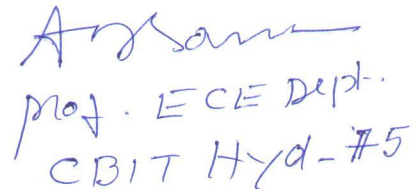 Prof. ECE Dept.
CBIT Hyd-#5